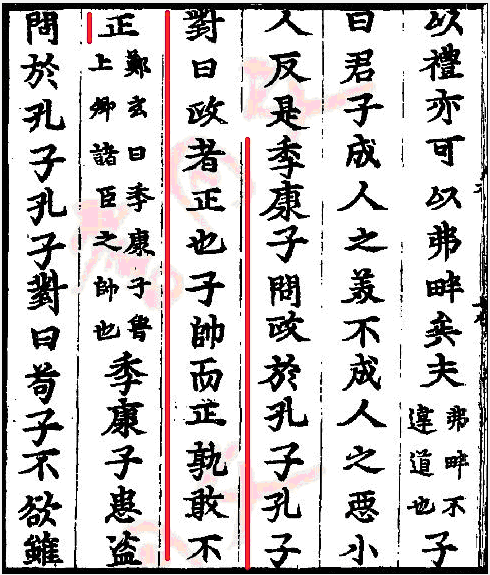 以禮亦可以弗畔矣夫弗畔不違道也子
曰君子成人之美不成人之惡小
人反是季康子問政於孔子孔子
對曰政者正也子帥而正孰敢不
正鄭玄曰季康子魯上卿諸臣之帥也季康子患盗
問於孔子孔子對曰苟子不欲雖